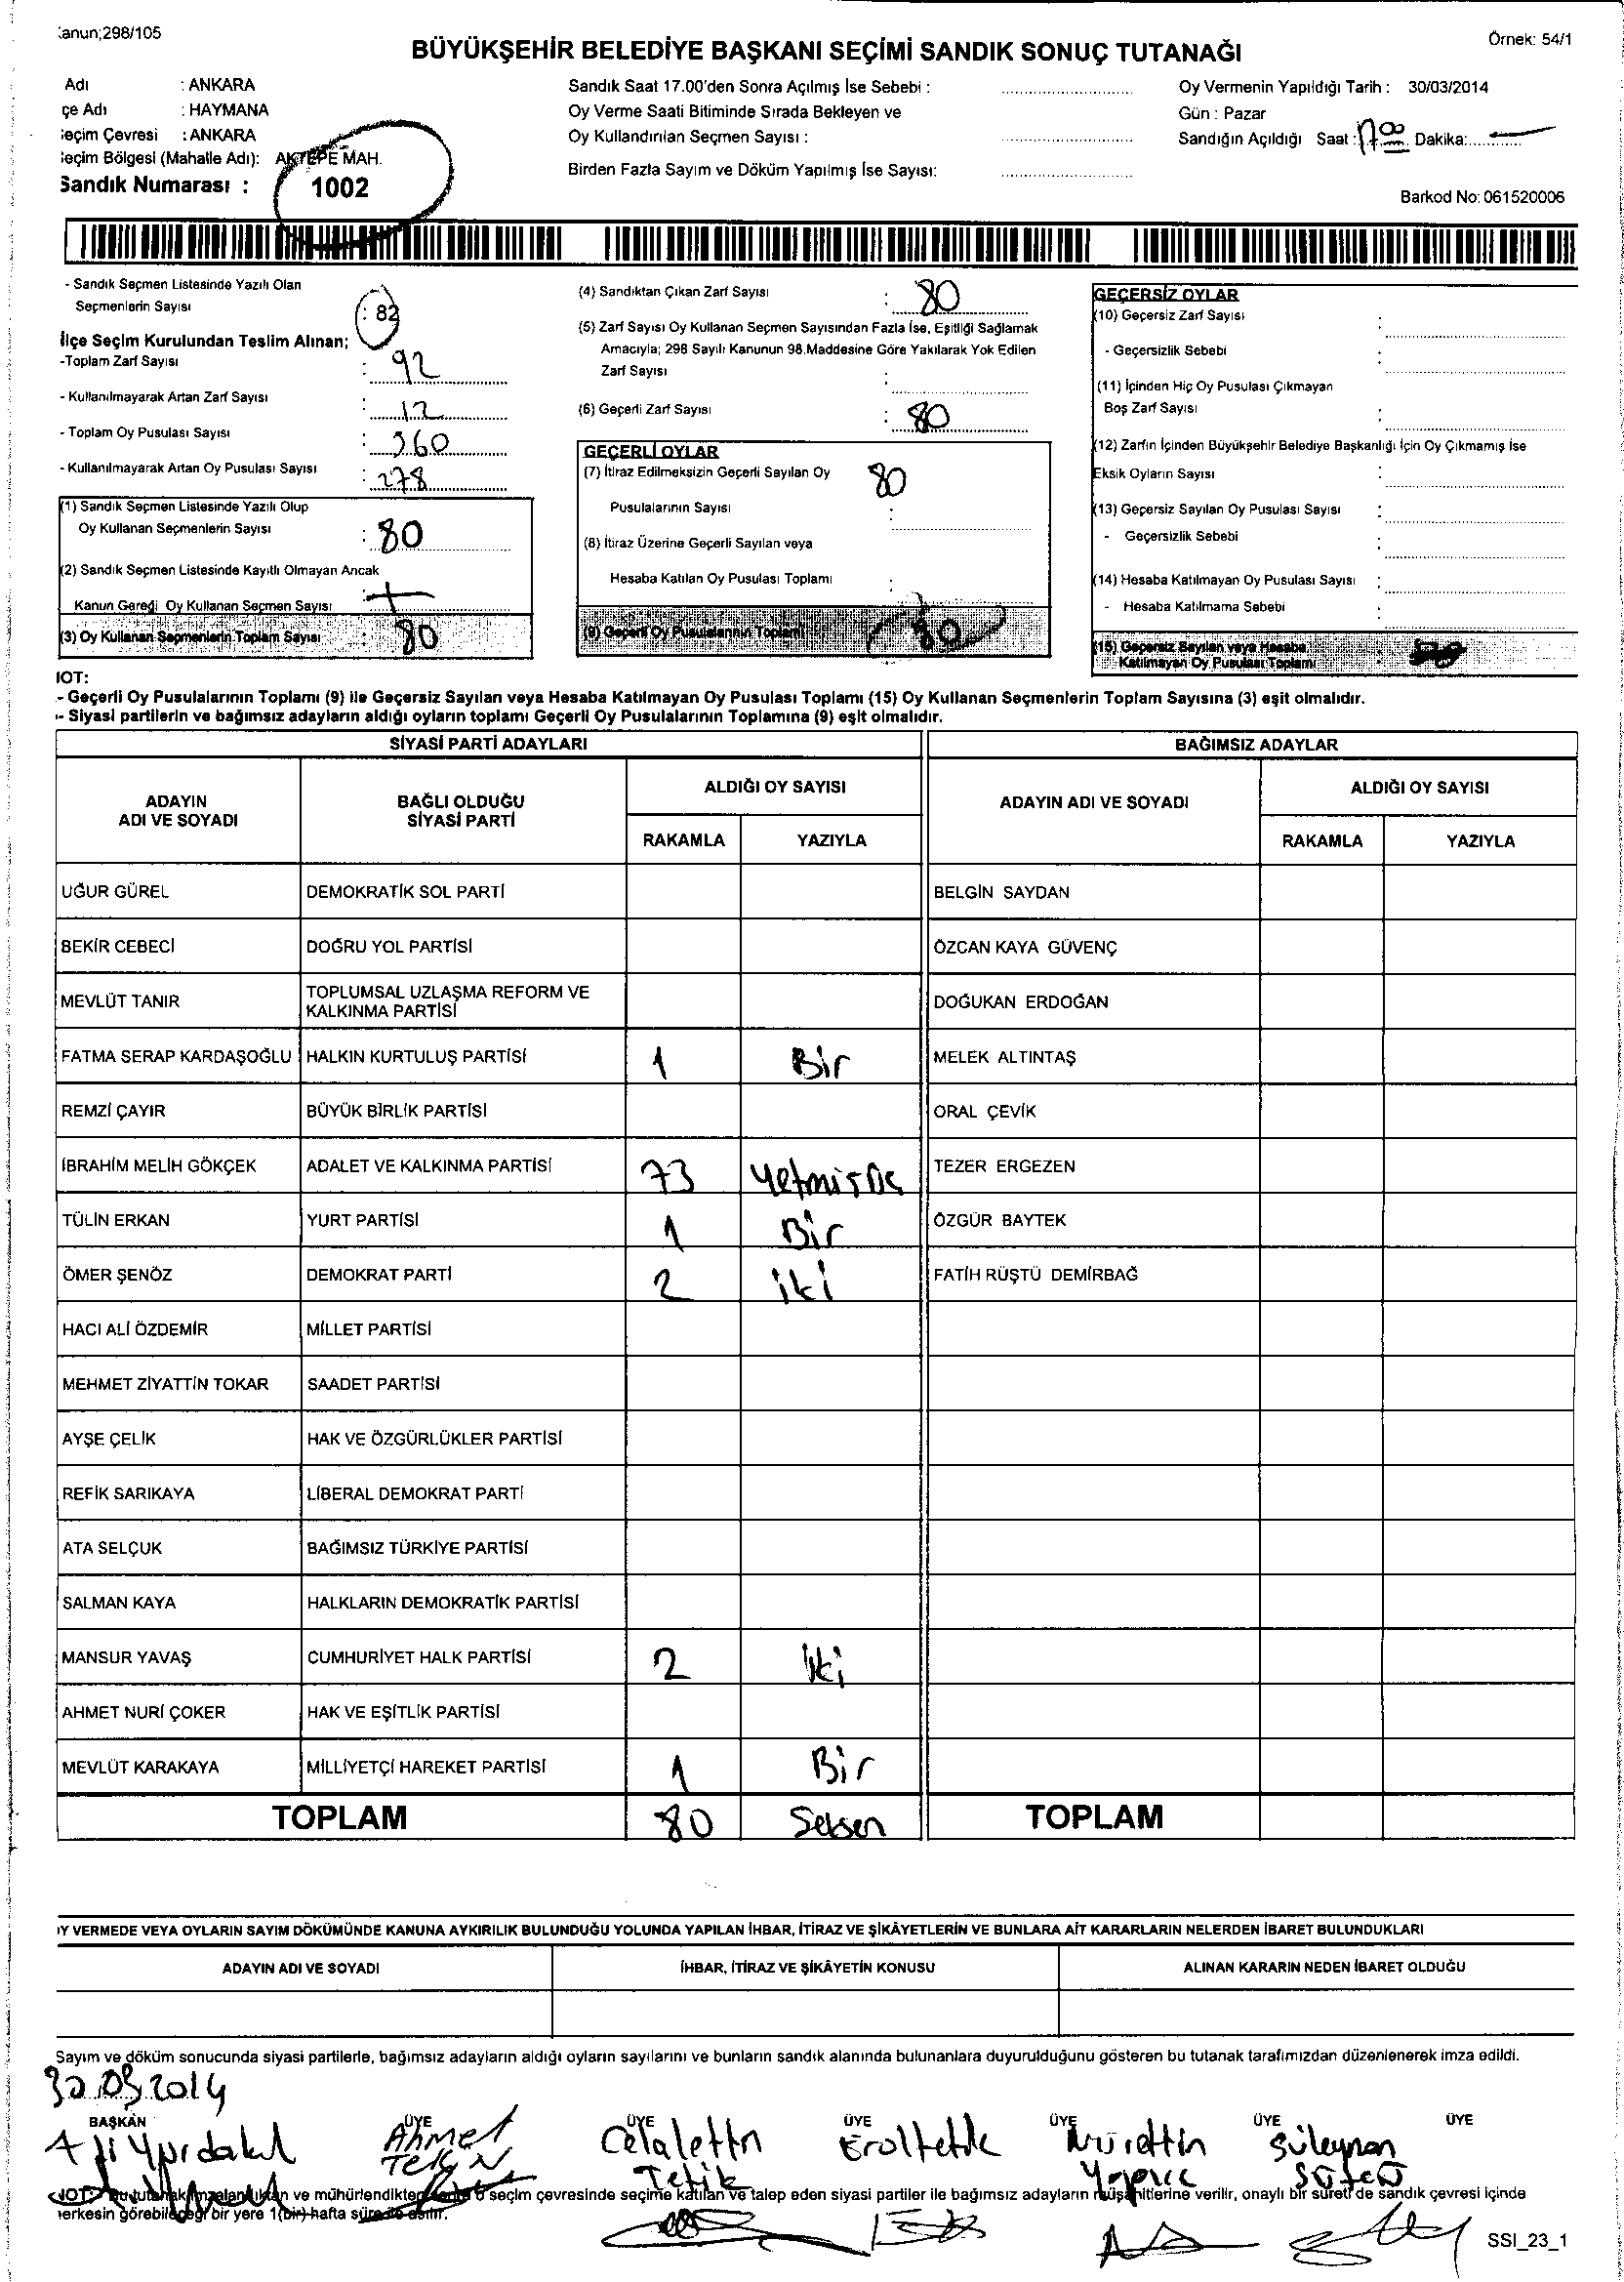 Kanun;298/105
Örnek: 54/1
BÜYÜKŞEHİR BELEDİYE BAŞKANI SEÇİMİ SANDIK SONUÇ TUTANAĞI
Adı : ANKARA
çe Adı : HAYMANA
eçim Çevresi : ANKARA
eçim Bölgesi (Mahalle Adı): AKTEPE MAH.
Sandık Numarası : 1002
Sandık Saat 17.00'den Sonra Açılmış İse Sebebi :
Oy Verme Saati Bitiminde Sırada Bekleyen ve
Oy Kullandırılan Seçmen Sayısı :
Birden Fazla Sayım ve Döküm Yapılmış İse Sayısı:
Oy Vermenin Yapıldığı Tarih : 30/03/2014
Gün : Pazar
Sandığın Açıldığı Saat : 17 00 Dakika: —
Barkod No: 061520006
- Sandık Seçmen Listesinde Yazılı Olan
Seçmenlerin Sayısı : 82
İlçe Seçim Kurulundan Teslim Alınan;
-Toplam Zarf Sayısı : 92
- Kullanılmayarak Artan Zarf Sayısı : 12
- Toplam Oy Pusulası Sayısı : 360
- Kullanılmayarak Artan Oy Pusulası Sayısı : 278
(1) Sandık Seçmen Listesinde Yazılı Olup
Oy Kullanan Seçmenlerin Sayısı : 80
(2) Sandık Seçmen Listesinde Kayıtlı Olmayan Ancak
Kanun Gereği Oy Kullanan Seçmen Sayısı :
(3) Oy Kullanan Seçmenlerin Toplam Sayısı : 80
(4) Sandıktan Çıkan Zarf Sayısı : 80
(5) Zarf Sayısı Oy Kullanan Seçmen Sayısından Fazla İse, Eşitliği Sağlamak
Amacıyla; 298 Sayılı Kanunun 98.Maddesine Göre Yakılarak Yok Edilen
Zarf Sayısı :
(6) Geçerli Zarf Sayısı : 80
GEÇERLİ OYLAR
(7) İtiraz Edilmeksizin Geçerli Sayılan Oy 80
Pusulalarının Sayısı :
(8) İtiraz Üzerine Geçerli Sayılan veya
Hesaba Katılan Oy Pusulası Toplamı :
(9) Geçerli Oy Pusulalarının Toplamı 80
GEÇERSİZ OYLAR
(10) Geçersiz Zarf Sayısı :
- Geçersizlik Sebebi :
(11) İçinden Hiç Oy Pusulası Çıkmayan
Boş Zarf Sayısı :
(12) Zarfın İçinden Büyükşehir Belediye Başkanlığı İçin Oy Çıkmamış İse
Eksik Oyların Sayısı :
(13) Geçersiz Sayılan Oy Pusulası Sayısı :
- Geçersizlik Sebebi :
(14) Hesaba Katılmayan Oy Pusulası Sayısı :
- Hesaba Katılmama Sebebi :
(15) Geçersiz Sayılan veya Hesaba
Katılmayan Oy Pusulası Toplamı :
NOT:
- Geçerli Oy Pusulalarının Toplamı (9) ile Geçersiz Sayılan veya Hesaba Katılmayan Oy Pusulası Toplamı (15) Oy Kullanan Seçmenlerin Toplam Sayısına (3) eşit olmalıdır.
- Siyasi partilerin ve bağımsız adayların aldığı oyların toplamı Geçerli Oy Pusulalarının Toplamına (9) eşit olmalıdır.
SİYASİ PARTİ ADAYLARI BAĞIMSIZ ADAYLAR
ADAYIN ADI VE SOYADI BAĞLI OLDUĞU SİYASİ PARTİ ALDIĞI OY SAYISI ADAYIN ADI VE SOYADI ALDIĞI OY SAYISI
RAKAMLA YAZIYLA RAKAMLA YAZIYLA
UĞUR GÜREL DEMOKRATİK SOL PARTİ BELGİN SAYDAN
BEKİR CEBECİ DOĞRU YOL PARTİSİ ÖZCAN KAYA GÜVENÇ
MEVLÜT TANIR TOPLUMSAL UZLAŞMA REFORM VE KALKINMA PARTİSİ DOĞUKAN ERDOĞAN
FATMA SERAP KARDAŞOĞLU HALKIN KURTULUŞ PARTİSİ 1 Bir MELEK ALTINTAŞ
REMZİ ÇAYIR BÜYÜK BİRLİK PARTİSİ ORAL ÇEVİK
İBRAHİM MELİH GÖKÇEK ADALET VE KALKINMA PARTİSİ 73 Yetmişüç TEZER ERGEZEN
TÜLİN ERKAN YURT PARTİSİ 1 Bir ÖZGÜR BAYTEK
ÖMER ŞENÖZ DEMOKRAT PARTİ 2 iki FATİH RÜŞTÜ DEMİRBAĞ
HACI ALİ ÖZDEMİR MİLLET PARTİSİ
MEHMET ZİYATTİN TOKAR SAADET PARTİSİ
AYŞE ÇELİK HAK VE ÖZGÜRLÜKLER PARTİSİ
REFİK SARIKAYA LİBERAL DEMOKRAT PARTİ
ATA SELÇUK BAĞIMSIZ TÜRKİYE PARTİSİ
SALMAN KAYA HALKLARIN DEMOKRATİK PARTİSİ
MANSUR YAVAŞ CUMHURİYET HALK PARTİSİ 2 iki
AHMET NURİ ÇOKER HAK VE EŞİTLİK PARTİSİ
MEVLÜT KARAKAYA MİLLİYETÇİ HAREKET PARTİSİ 1 Bir
TOPLAM 80 Seksen TOPLAM
OY VERMEDE VEYA OYLARIN SAYIM DÖKÜMÜNDE KANUNA AYKIRILIK BULUNDUĞU YOLUNDA YAPILAN İHBAR, İTİRAZ VE ŞİKÂYETLERİN VE BUNLARA AİT KARARLARIN NELERDEN İBARET BULUNDUKLARI
ADAYIN ADI VE SOYADI İHBAR, İTİRAZ VE ŞİKÂYETİN KONUSU ALINAN KARARIN NEDEN İBARET OLDUĞU
Sayım ve döküm sonucunda siyasi partilerle, bağımsız adayların aldığı oyların sayılarını ve bunların sandık alanında bulunanlara duyurulduğunu gösteren bu tutanak tarafımızdan düzenlenerek imza edildi.
30.03.2014
BAŞKAN ÜYE ÜYE ÜYE ÜYE ÜYE ÜYE
Ali Yurdakul Ahmet Celalettin Erol tetik Nurettin Süleyman
TEKİN Tetik
NOT: Bu tutanak imzalandıktan ve mühürlendikten sonra o seçim çevresinde seçime katılan ve talep eden siyasi partiler ile bağımsız adayların müşahitlerine verilir, onaylı bir sureti de sandık çevresi içinde
herkesin görebileceği bir yere 1(bir) hafta süre ile asılır.
SSI_23_1